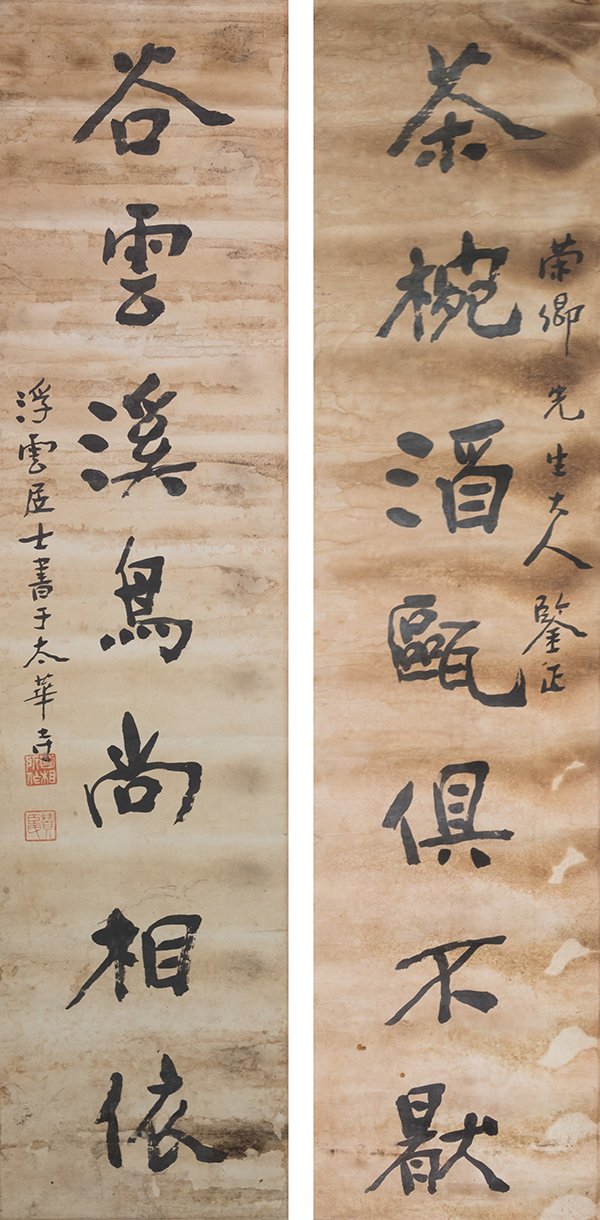 荣卿先生大人鑒正
茶椀酒甌俱不猒
谷雲溪鳥尚相依
浮雲居士書于太華寺